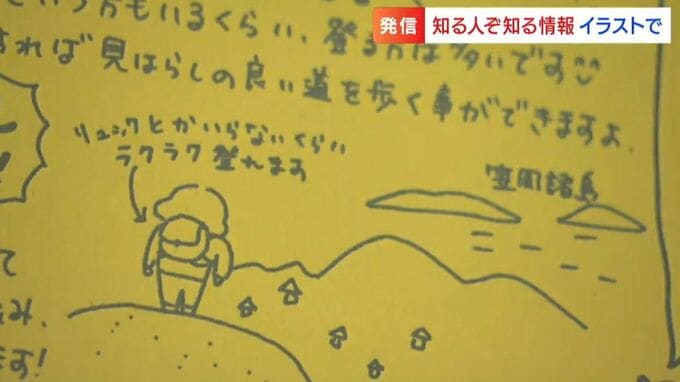 発信 知る人ぞ知る情報 イラストで
いう方もいるくらい、登る方は多いです
すれば見はらしの良い道を歩く事ができますよ。
リュックとかいらないくらい
ラクラク登れます
笠岡諸島
て
み、
ます!